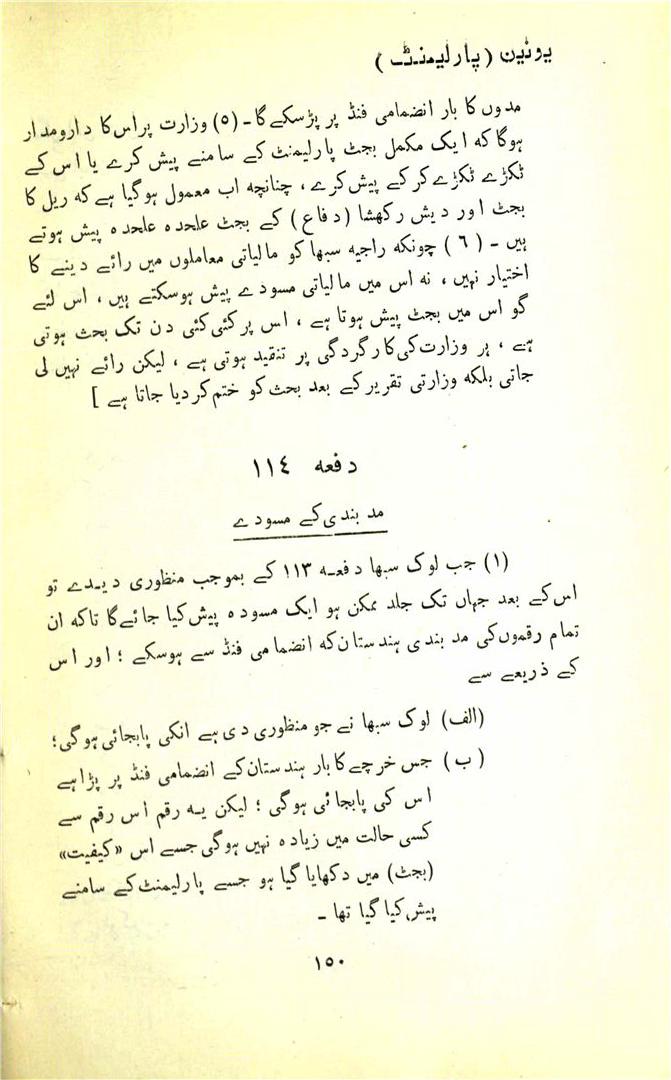 یونین (پارلیمنٹ)
مدوں کا بار انضمامی فنڈ پر پڑ سکے گا ۔ (۵) وزارت پر اس کا دارومدار
ہوگا کہ ایک مکمل بجٹ پارلیمنٹ کے سامنے پیش کرے یا اس کے
ٹکڑے ٹکڑے کرکے پیش کرے، چنانچہ اب معمول ہوگیا ہے کہ ریل کا
بجٹ اور دیش رکھشا (دفاع) کے بجٹ علحدہ علحدہ پیش ہوتے
ہیں ۔ (٦) چونکہ راجیہ سبھا کو مالیاتی معاملوں میں رائے دینے کا
اختیار نہیں، نہ اس میں مالیاتی مسودے پیش ہوسکتے ہیں، اس لئے
گو اس میں بجٹ پیش ہوتا ہے، اس پر کئی کئی دن تک بحث ہوتی
ہے، ہر وزارت کی کارگردگی پر تنقید ہوتی ہے، لیکن رائے نہیں لی
جاتی بلکہ وزارتی تقریر کے بعد بحث کو ختم کردیا جاتا ہے ]
دفعہ ۱۱٤
مد بندی کے مسودے
(۱) جب لوک سبھا دفعہ ۱۱۳ کے بموجب منظوری دیدے تو
اس کے بعد جہاں تک جلد ممکن ہو ایک مسودہ پیش کیا جائے گا تاکہ ان
تمام رقموں کی مد بندی ہندستان کہ انضمامی فنڈ سے ہوسکے؛ اور اس
کے ذریعے سے
(الف) لوک سبھا نے جو منظوری دی ہے انکی پابجائی ہوگی؛
(ب) جس خرچے کا بار ہندستان کے انضمامی فنڈ پر پڑا ہے
اس کی پابجائی ہوگی؛ لیکن یہ رقم اس رقم سے
کسی حالت میں زیادہ نہیں ہوگی جسے اس «کیفیت»
(بجٹ) میں دکھایا گیا ہو جسے پارلیمنٹ کے سامنے
پیش کیا گیا تھا ۔
۱۵۰